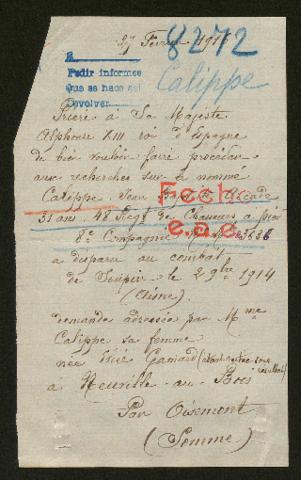 27 Février 191
8272
Calippe
Pedir informes
que se hace
devolver
Prière à Sa Majesté
Alphonse XIII roi d'Espagne
de bien vouloir faire procéder
aux recherches sur le nommé
Calippe Jean Arcade
Fecho
31 ans 48 Regt de Chasseurs à pied
8e Compagnie
e.a.e.
a disparu au combat
de Soupir le 2 9bre 1914
(Aisne)
demande adressée par Mme
Calippe sa femme
née Gamard
à Neuville-au-Bois
Par Oisemont
(Somme)